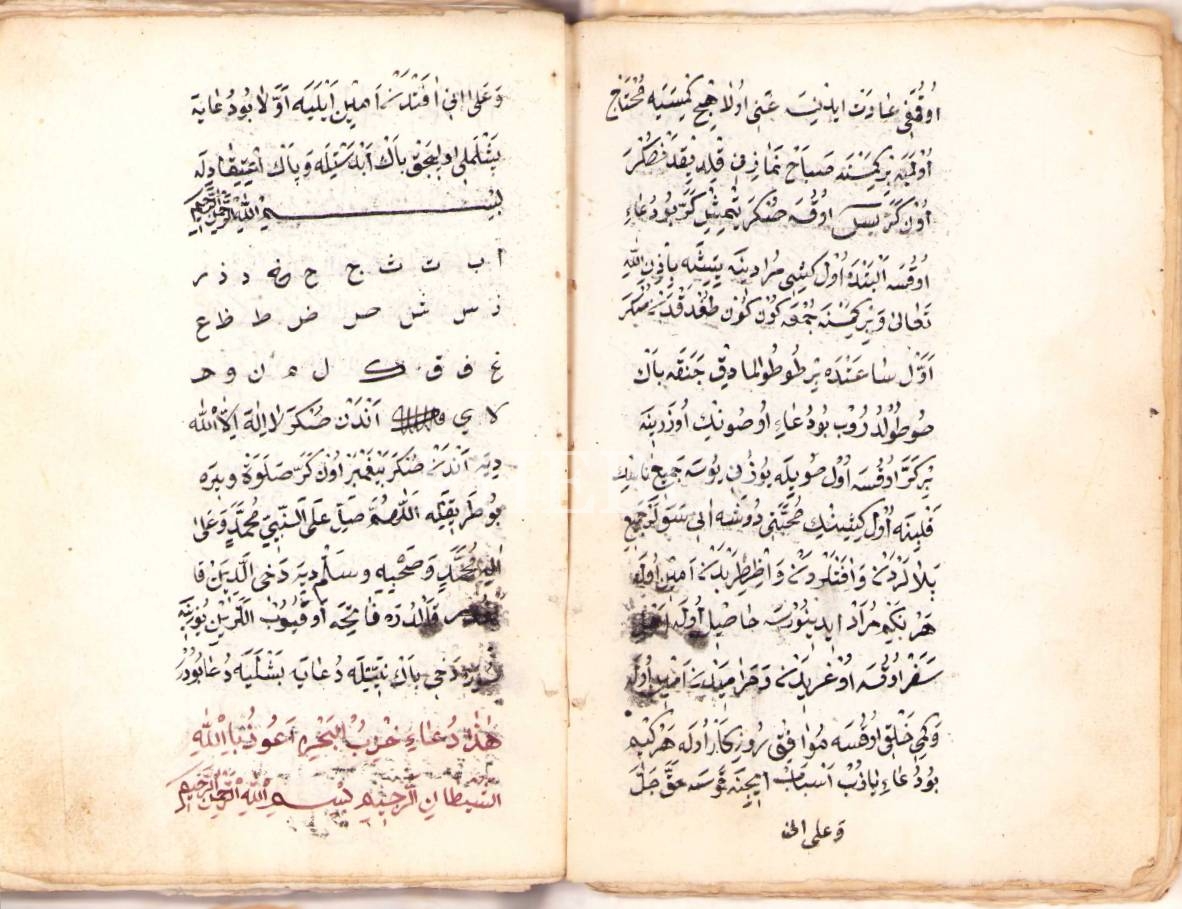 اُوقُمَغِى عَادَتْ ايدِنسَه غَنِى اُولا هِيچ كِمسَيَه مُحْتَاجْ
اُولْمَيَه بِرْ كِمْسَنَه صَبَاحْ نَمَازِنِى قِلْدِيقْدَنْ صُكْرَ
اُونْ كَرَّ يٰسۤ اوُقُسَه صُكْرَ يَتْمِشْ كَرَّ بُو دُعَاءِ
اوُقُسَه اَلْبَتْدَه اُوْلْ كِشِى مُرَادِينَه يَتِشَه بِاِذْنِ اللّٰهِ
تَعَالىٰ وَبِرْ كِمْسَنَه جُمْعَه كُونْ كُونْ طُغْدُقْدَنْ صُكْرَ
اَوَّلْ سَاعَتْدَه بِرْ طُوطُولْمَادِقْ جَنَقَه پَاكْ
صُو طُولْدُرُوبْ بُو دُعَاءِ اوُ صُونِكْ اُوزَرِينَه
بِرْ كَرَّ اوُقُسَه اُوْلْ صُويِلَه يُوزُنِ يُوسَه جَمِيعِ نَاسِكْ
قَلْبِينَه اُوْلْ كِشِينِكْ مُحَبَّتِى دُوشَه اَنِى سَوَلَرْ جَمِيعِ
بَلَالَرْدَنْ وَاٰفَتْلَرْدَنْ وَ اَمِينْ اُولَه
هَرْ نَكِيمْ مُرَادْ ايدِينُورْسَه حَاصِلْ اُولَه
سَفَرْ اوُقُسَه اُوغْرِيلَرْدَنْ وَحَرَامِيلَرْدَنْ اَمِينْ اُولَه
وَكَمِى خَلْقِى اوُقُسَه مُوَافِقْ رُوزِكَارْ اُولَه هَرْ كِيمْ
بُو دُعَاءِ يَازُبْ اَسْبَابْ ايچِنَه قُوسَه حَقْ جَلَّ
وَعَلىٰ انى
وَعَلىٰ اَنِى اٰفَتْدَنْ اَمِينْ اَيْلَيَه اَوَّلَا بُو دُعَايَه
بَشْلَمَلِى اولِيجَقْ پَاكْ اَبْدَسْتِلَه وَپَاكْ اعْتِقَادِلَه
بِسْمِ اللّٰهِ الرَّحْمٰنِ الرَّحِيمِ
ا ب ت ث ج ح خ د ذ ر
ز س ش ص ض ط ظ ع
غ ف ق ك ل م ن و ه
لا ي اَنْدَنْ صُكْرَ لَا اِلٰهَ اِلَّا اللّٰه
دِيَه اَنْدَنْ صُكْرَ پَيْغَمْبَرْ اُونْ كَرَّ صَلَوَةْ وِيرَه
بُو طَرِيقِيلَه اَللّٰهُمَّ صَلِّ عَلَى النَّبِيِّ مُحَمَّدٍ وَعَلىٰ
اٰلِ مُحَمَّدٍ وَصَحْبِهِ وَسَلِّمْ دِيَه دَخِى اَللَّرِينْ
قَالْدُرَه فَاتِحَه اوُقُيُوبْ اَللَّرِينْ يُوزِينَه
سُورَه دَخِى پَاكْ نِيَّتِلَه دُعَايَه بَشْلَيَه دُعَا بُودُرْ
هٰذَا دُعَاءِ حِزْبُ الْبَحْرِ اَعُوذُ بِاللّٰهِ
الشَّيْطَانِ الرَّجِيمِ بِسْمِ اللّٰهِ الرَّحْمٰنِ الرَّحِيمِ